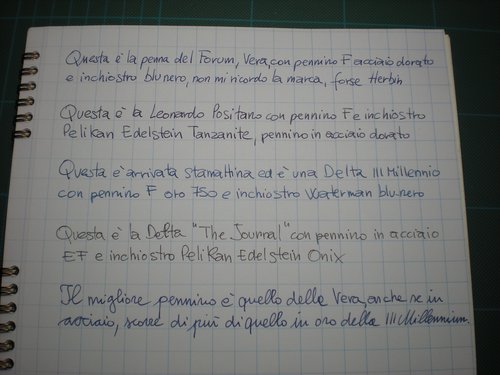 Questa è la penna del Forum, Vera, con pennino F acciaio dorato
e inchiostro blu nero, non mi ricordo la marca, forse Herbin
Questa è la Leonardo Positano con pennino F e inchiostro
Pelikan Edelstein Tanzanite, pennino in acciaio dorato
Questa è arrivata stamattina ed è una Delta III Millennio
con pennino F oro 750 e inchiostro Waterman blu nero
Questa è la Delta "The Journal" con pennino in acciaio
EF e inchiostro Pelikan Edelstein Onix
Il migliore pennino è quello della Vera, anche se in
acciaio, scorre di più di quello in oro della III Millennium.